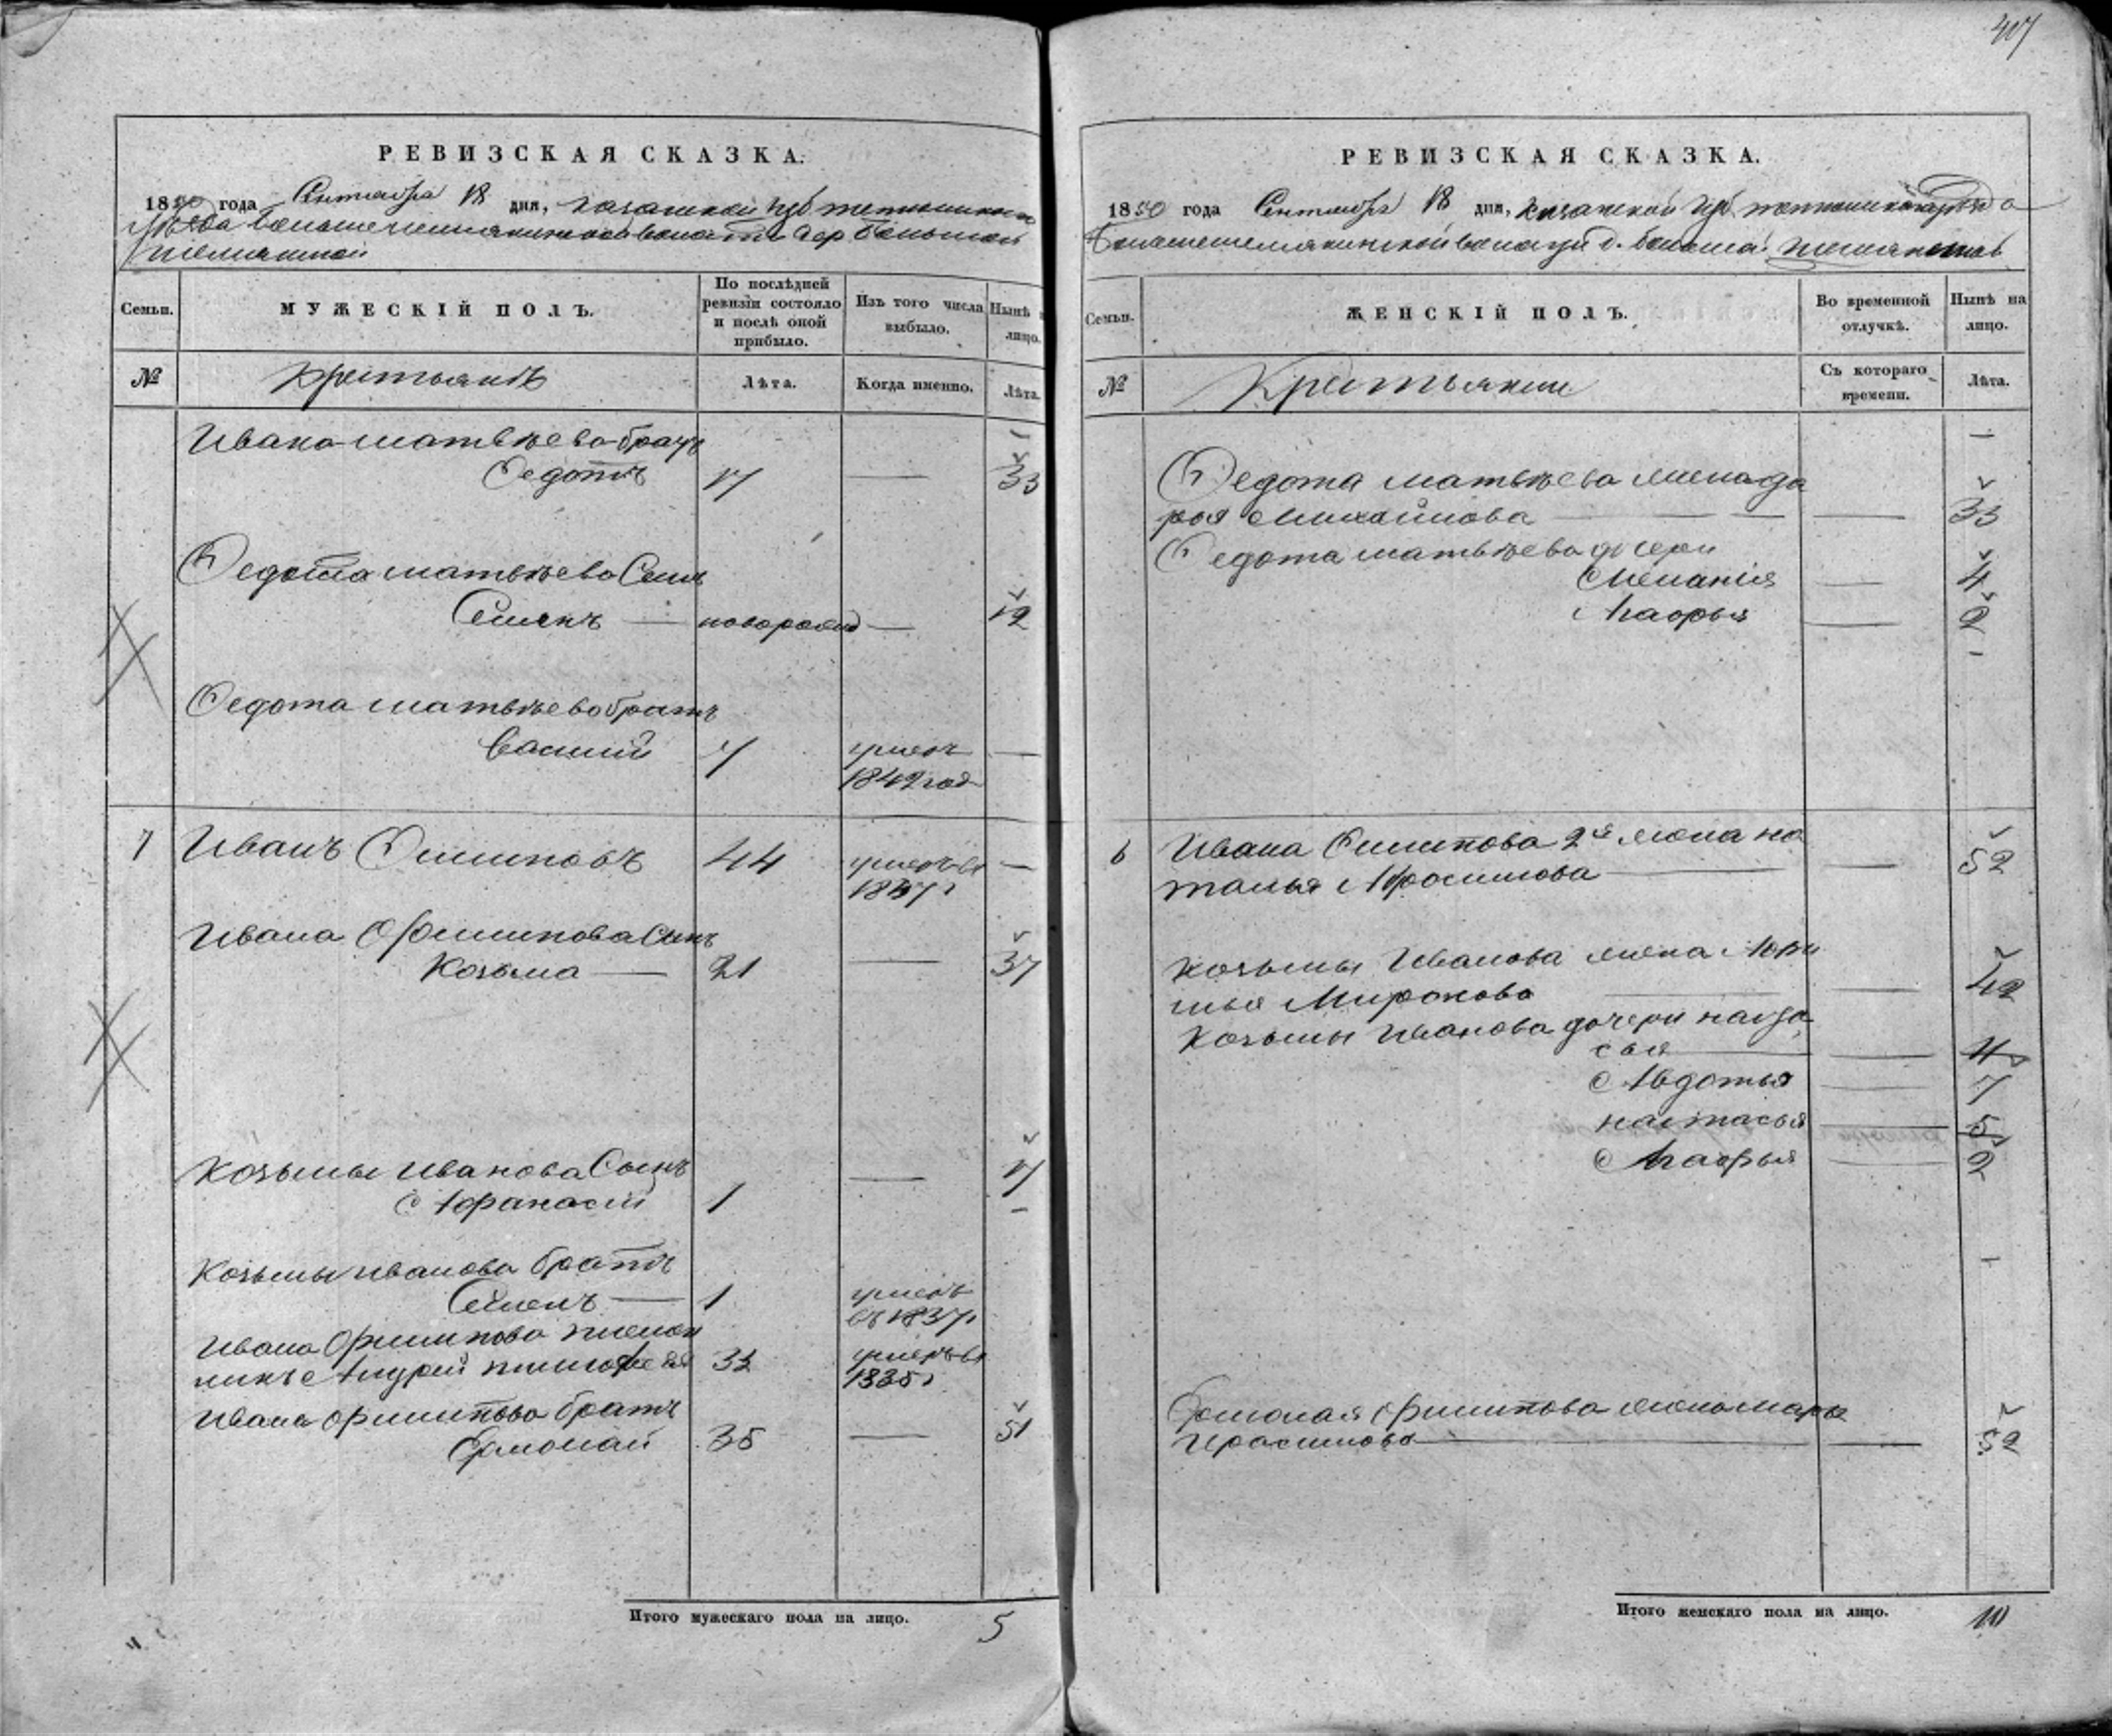 407
РЕВИЗСКАЯ СКАЗКА.
1850 года Сентября 18 дня, казанской губ тетюшинскаго
уѣзда дер большой
Семьи.
МУЖЕСКІЙ ПОЛЪ.
По послѣдней ревизіи состояло и послѣ оной прибыло.
Изъ того числа выбыло.
Нынѣ на лицо.
№
крестьянъ
Лѣта.
Когда именно.
Лѣта.
Ивана матвѣева братъ
Ѳедотъ 17 — 33
Ѳедота матвѣева Сынъ
Семенъ — новорожд — 12
Ѳедота матвѣева братъ
Василій 7 умеръ —
1842 год
7 Иванъ Филиповъ 44 умеръ въ —
Ивана Филипова Сынъ
Козьма — 21 — 37
Козьмы Иванова Сынъ
Афанасій 1 — 17
Козьмы иванова братъ
Семенъ — 1 умеръ
въ 1837г
Ивана Филипова племян
никъ Андрей 33 умеръ въ
1835г
Ивана филипова братъ
Ермолай 35 — 51
Итого мужескаго пола на лицо. 5
РЕВИЗСКАЯ СКАЗКА.
1850 года Сентября 18 дня, казанской губ тетюшинскаго уѣзда
волости д. большой
Семьи.
ЖЕНСКІЙ ПОЛЪ.
Во временной отлучкѣ.
Нынѣ на лицо.
№
Крестьянки
Съ котораго времени.
Лѣта.
Ѳедота матвѣева жена да
рья Михайлова — — 33
Ѳедота матвѣева дочери
Меланія — 4
Марфья — 2
6 Ивана Филипова 2я жена на
талья — — 52
Козьмы Иванова жена
Миронова — 42
Козьмы Иванова дочери
— — 11
Авдотья — 7
настасья — 5
Марфья — 2
Ермолая филипова жена марья
Герасимова — — 52
Итого женскаго пола на лицо. 10